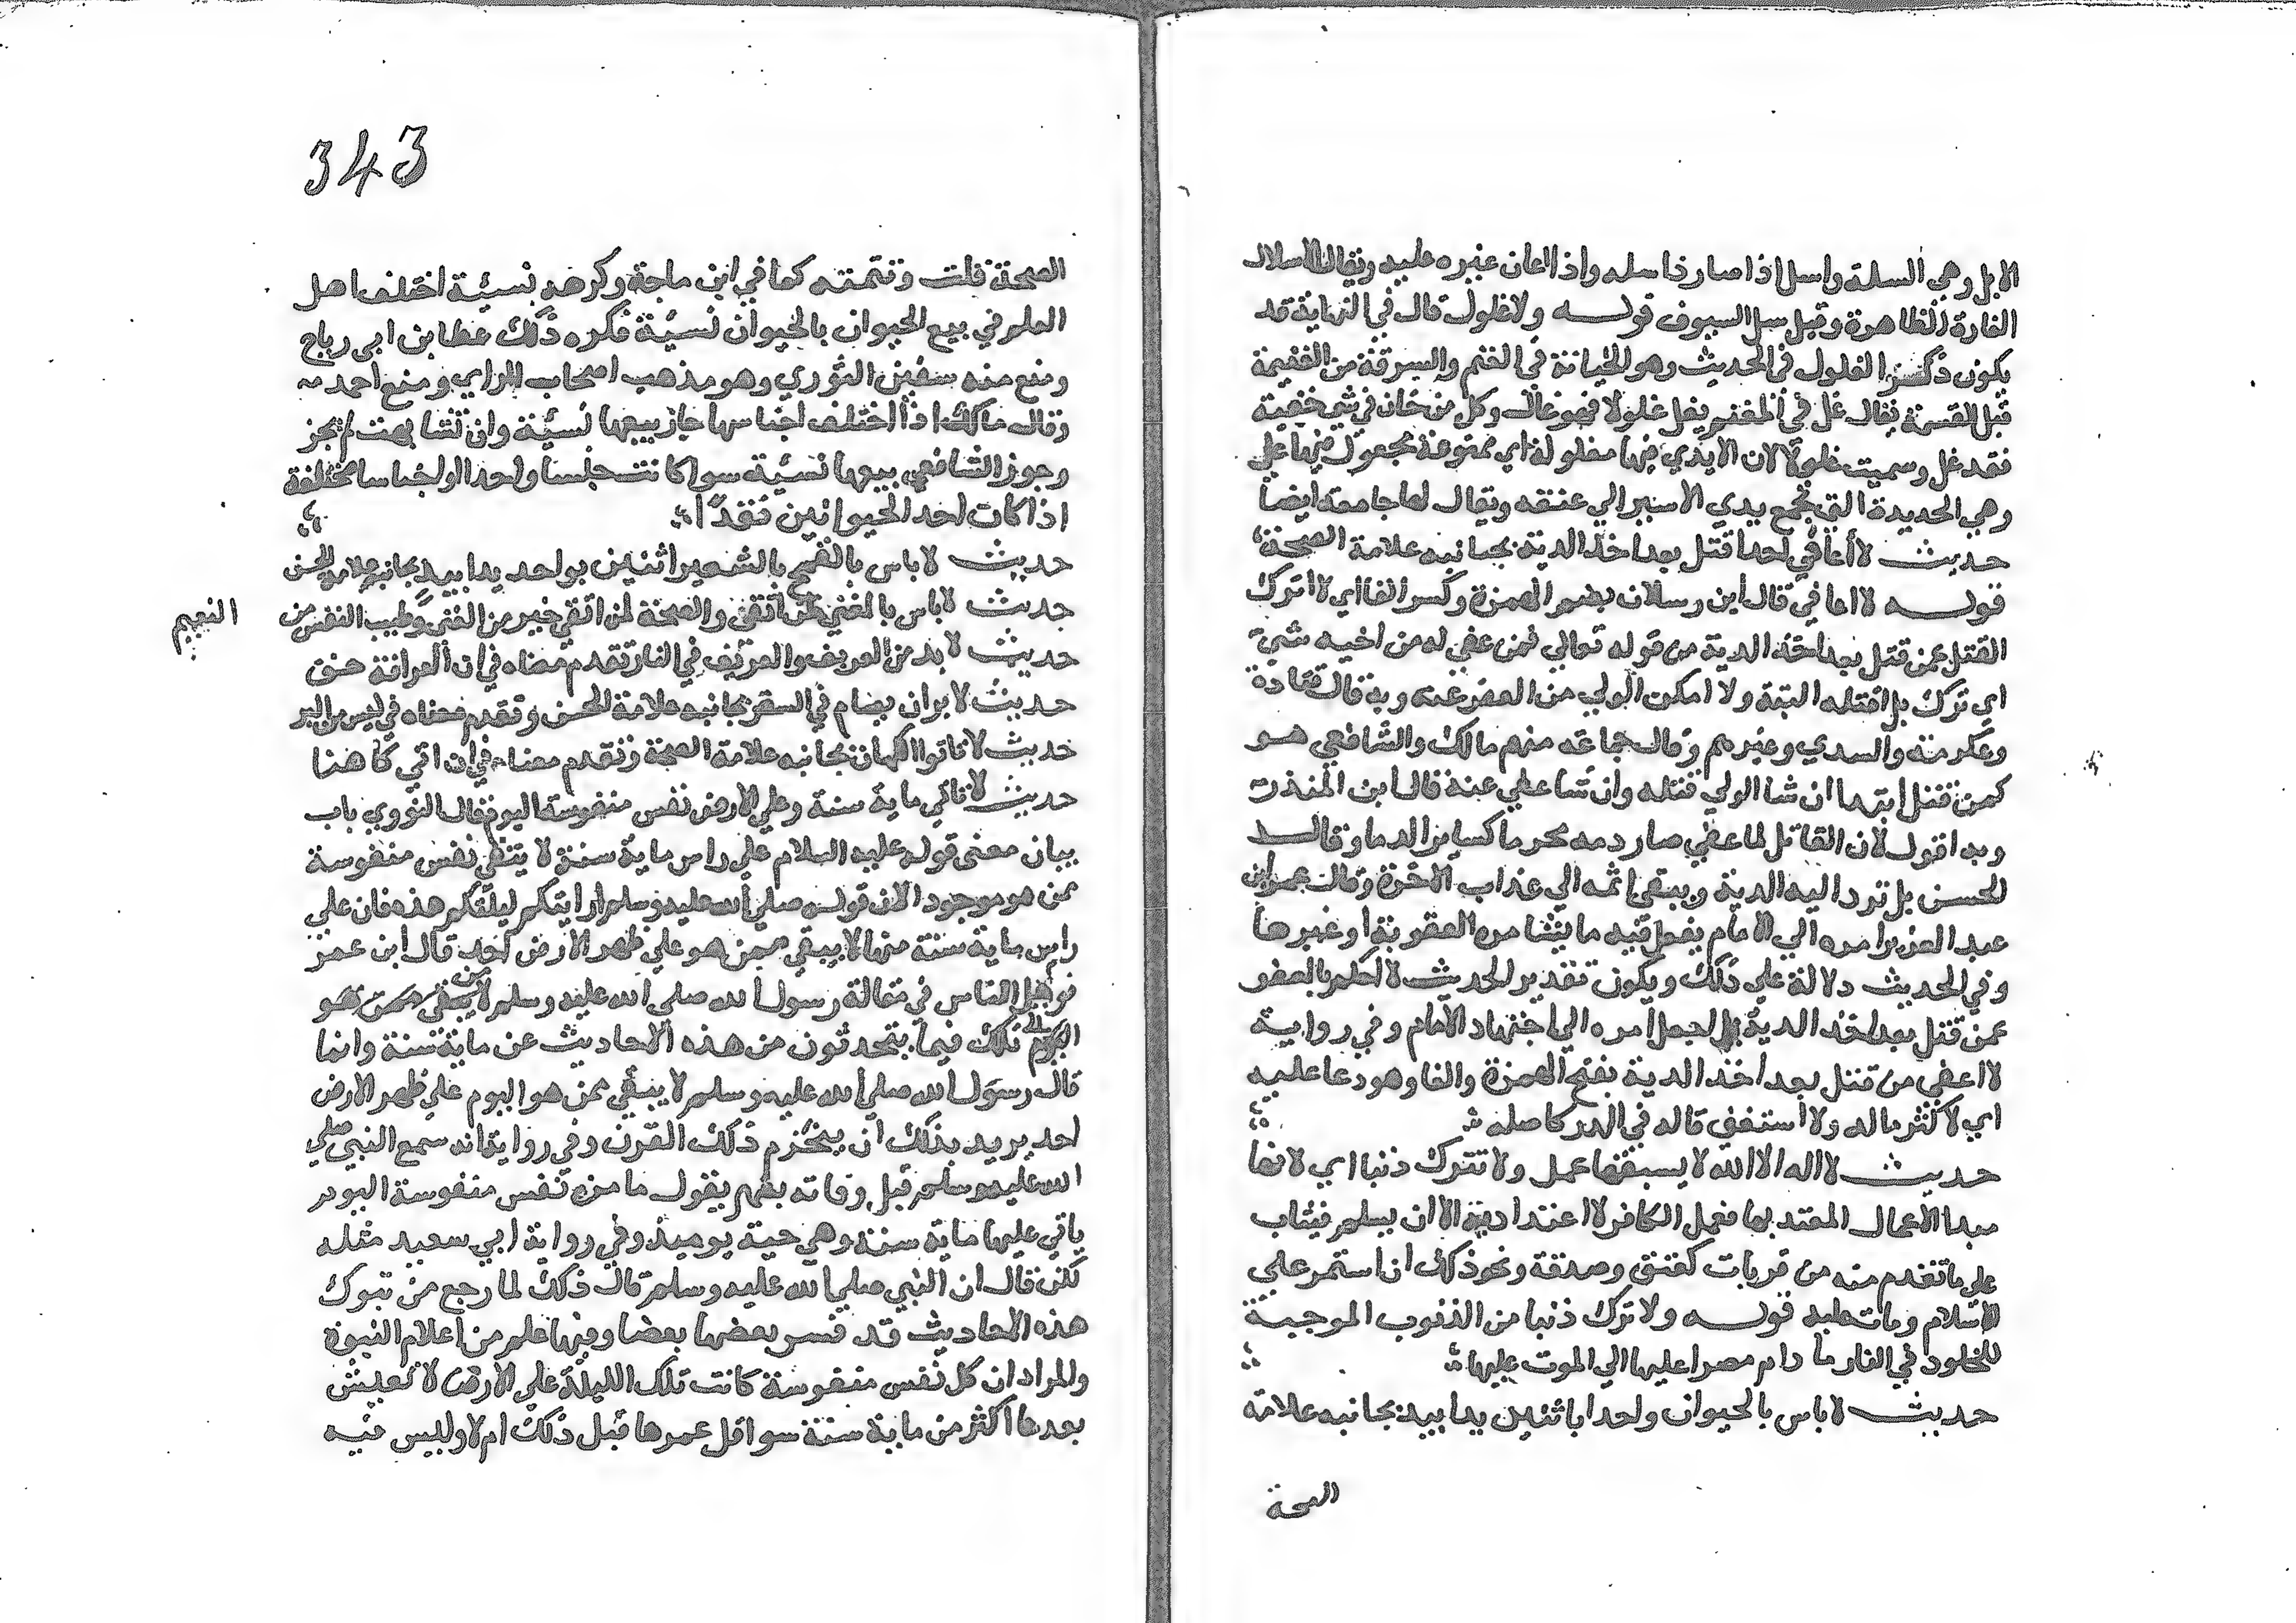 الابل وهي السلة واسل اذا صار ذا سله واذا اعان غيره عليه ويقال الاسلال
الغارة الظاهرة وقيل سل السيوف قوله ولا غلول قال في النهاية قد
يكون ذكر الغلول في الحديث وهو الخيانة في الغنم والسرقة من الغنيمة
قبل القسمة يقال غل في المغنم يغل غلولا فهو غال وكل من خان في شي خفية
فقد غل وسميت غلولا لان الايدي فيها مغلولة اي ممنوعة مجعول فيها غل
وهي الحديدة التي تجمع يدي الاسير الي عنقه ويقال لها جامعة ايضا
حديث لا أعافي احدا قتل بعد اخذ الدية بجانبه علامة الصحة
قوله لا اعافي قال ابن رسلان بضم الهمزة وكسر الفا اي لا اترك
القتل عمن قتل بعد اخذ الدية من قوله تعالي فمن عفي له من اخيه شي
اي ترك بل اقتله البتة ولا امكن الولي من العفو عنه وبه قال قتادة
وعكرمة والسدي وغيرهم وقال جماعة منهم مالك والشافعي هو
كمن قتل ابتدا ان شا الولي قتله وان شا عفي عنه قال ابن المنذر
وبه اقول لان القاتل لما عفي صار دمه محرما كسايرالدما وقال
الحسن بل ترد اليه الدية ويبقي اثمه الي عذاب الاخرة وقال عمر ابن
عبد العزيز امره الي الامام يفعل فيه ما يشا من العقوبة او غيرها
وفي الحديث دلالة علي ذلك ويكون تقدير الحديث لا احكم بالعفو
عمن قتل بعد اخذ الدية بل اجعل امره الي اجتهاد الامام وفي رواية
لا اعفي من قتل بعد اخذ الدية بفتح الهمزة والفا وهو دعا عليه
اي لا كثر ماله ولا استغني قاله في الدر كاصله
حديث لا اله الا الله لا يسبقها عمل ولا تترك ذنبا اي لانها
مبدا الاعمال المعتد بها فعمل الكافر لا اعتداد به الا ان يسلم فيثاب
علي ما تقدم منه من قربات كعتق وصدقة ونحو ذلك ان استمر علي
الاسلام ومات عليه قوله ولا ترك ذنبا من الذنوب الموجبة
للخلود في النار ما دام مصرا عليها الي الموت عليها
حديث لا باس بالحيوان واحدا باثنين يدا بيد بجانبه علامة
الصحة
343
الصحة قلت وتتمته كما في ابن ماجة وكرهه نسيئة اختلف اهل
العلم في بيع الحيوان بالحيوان نسيئة فكره ذلك عطا بن ابي رباح
ومنع منه سفين الثوري وهو مذهب اصحاب الراي ومنع احمد
وقال مالك اذا اختلف اجناسها جاز بيعها نسيئة وان تشابهت لم يجز
وجوز الشافعي بيعها نسيئة سوا كانت جنسا واحدا او اجناسا مختلفة
اذا كان احد الحيوانين نقدا
حديث لا باس بالقمح بالشعير اثنين بواحد يدا بيد بجانبه علامة الحسن
حديث لا باس بالغني لمن اتقي والصحة لمن اتقي خير من الغني وطيب النفس من
النعيم
حديث لا بد من العريف والعريف في النار تقدم معناه في ان العرافة حق
حديث لا بر ان يصام في السفر بجانبه علامة الحسن وتقدم معناه في ليس من البر
حديث لا تاتوا الكهان بجانبه علامة الصحة وتقدم معناه في من اتي كاهنا
حديث لا تاتي ماية سنة وعلي الارض نفس منفوسة اليوم قال النووي باب
بيان معني قوله عليه السلام علي راس ماية سنة لا يبقي نفس منفوسة
ممن هو موجود الان قوله صلي الله عليه وسلم ارايتكم ليلتكم هذه فان علي
راس ماية سنة منها لا يبقي ممن هو علي ظهر الارض احد قال ابن عمر
فوهل الناس في مقالة رسول الله صلي الله عليه وسلم لا يبقي ممن هو
اليوم تلك فيما يتحدثون من هذه الاحاديث عن ماية سنة وانما
قال رسول الله صلي الله عليه وسلم لا يبقي ممن هو اليوم علي ظهر الارض
احد يريد بذلك ان ينخرم ذلك القرن وفي رواية انه سمع النبي صلي
الله عليه وسلم قبل وفاته بشهر يقول ما من نفس منفوسة اليوم
ياتي عليها ماية سنة وهي حية يوميذ وفي رواية ابي سعيد مثله
لكن قال ان النبي صلي الله عليه وسلم قال ذلك لما رجع من تبوك
هذه الاحاديث قد فسر بعضها بعضا وفيها علم من اعلام النبوة
والمراد ان كل نفس منفوسة كانت تلك الليلة علي الارض لا تعيش
بعدها اكثر من ماية سنة سوا قل عمرها قبل ذلك ام لا وليس فيه